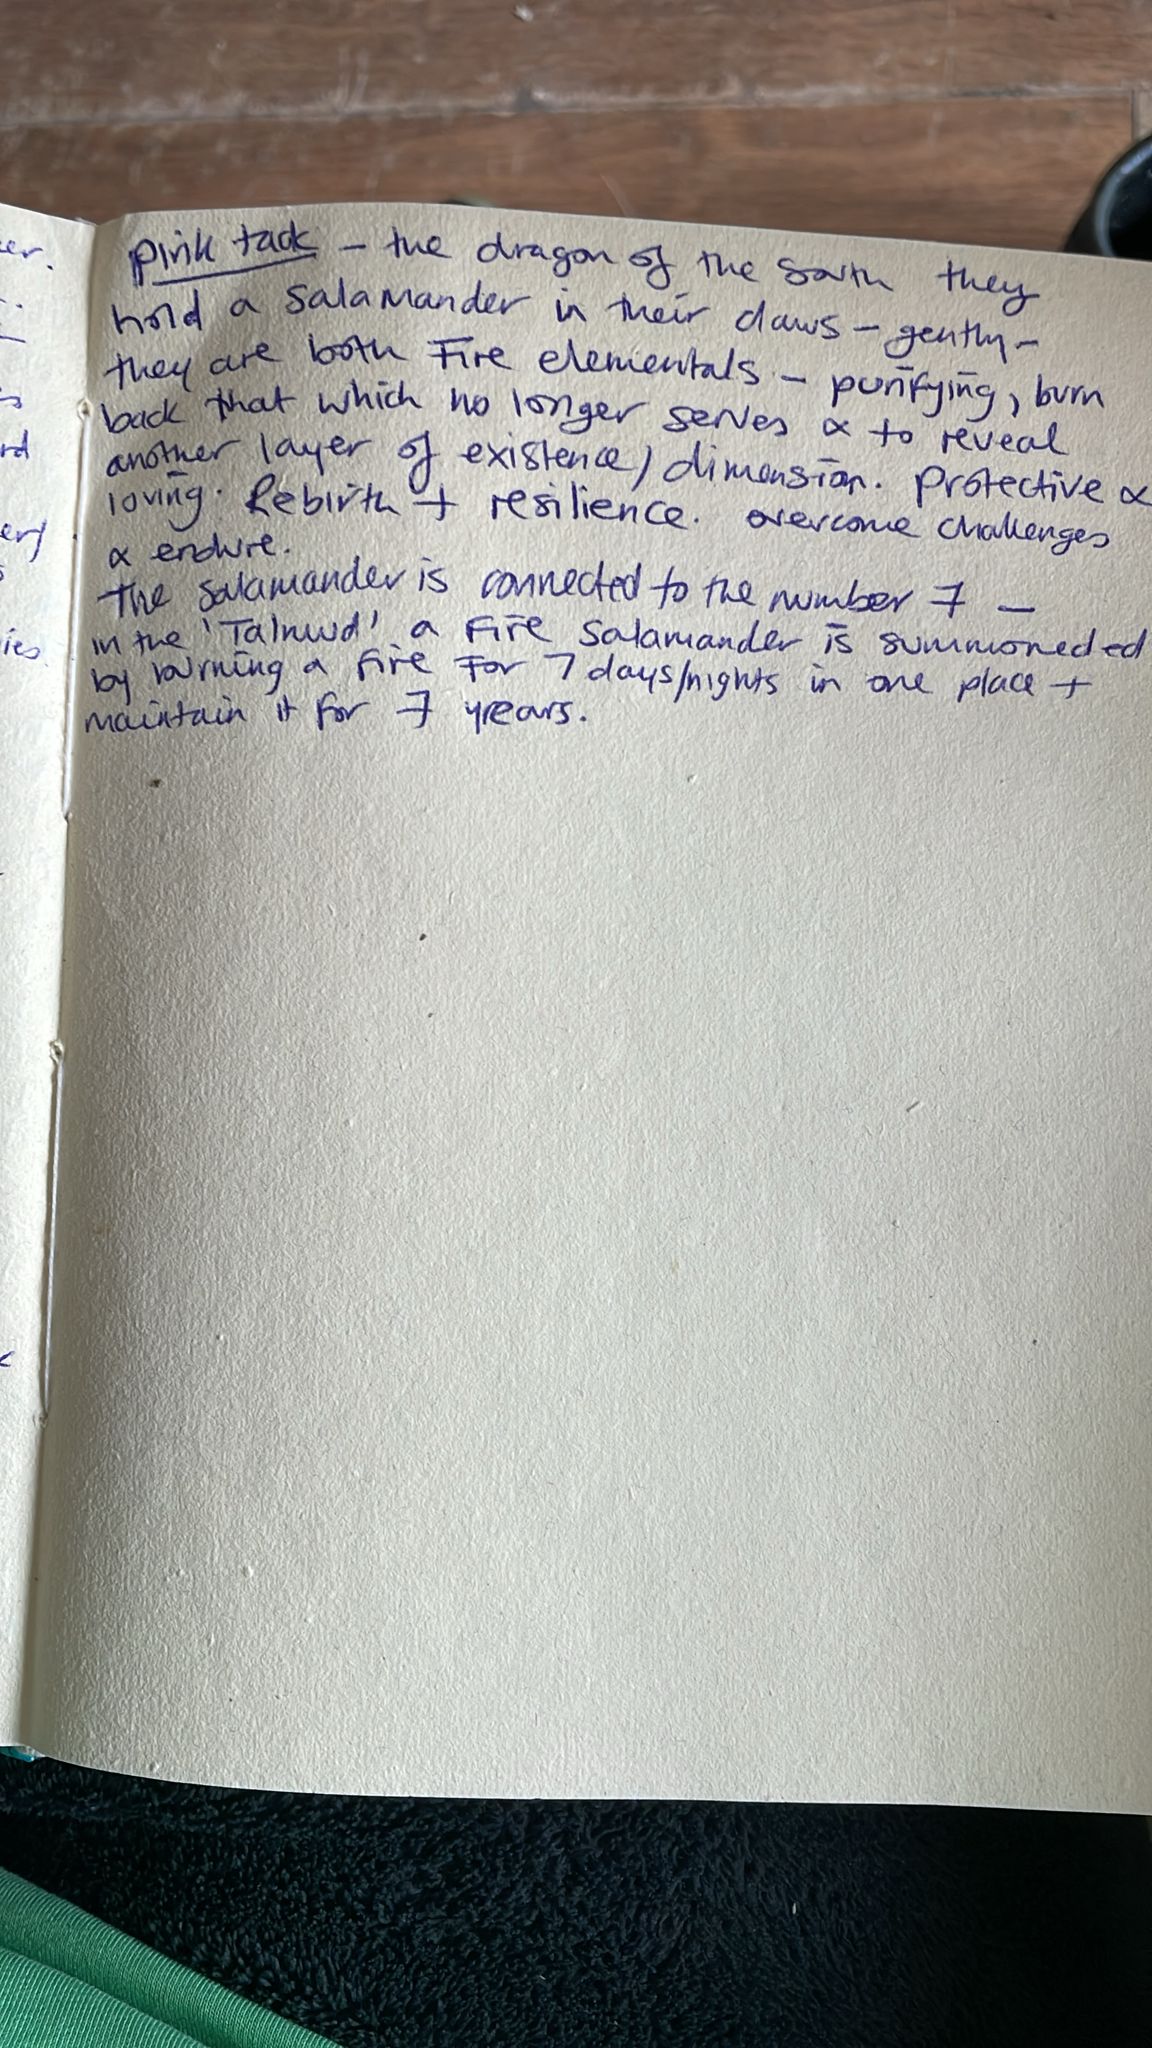 er.
pink tack – the dragon of the South they
hold a Salamander in their claws – gently –
they are both Fire elementals – purifying, burn
back that which no longer serves & to reveal
another layer of existence/dimension. Protective &
loving. Rebirth + resilience. overcome challenges
& endure.
The Salamander is connected to the number 7 –
in the 'Talmud' a Fire Salamander is summoneded
by burning a fire For 7 days/nights in one place +
maintain it for 7 yrears.
rd
er/
ies